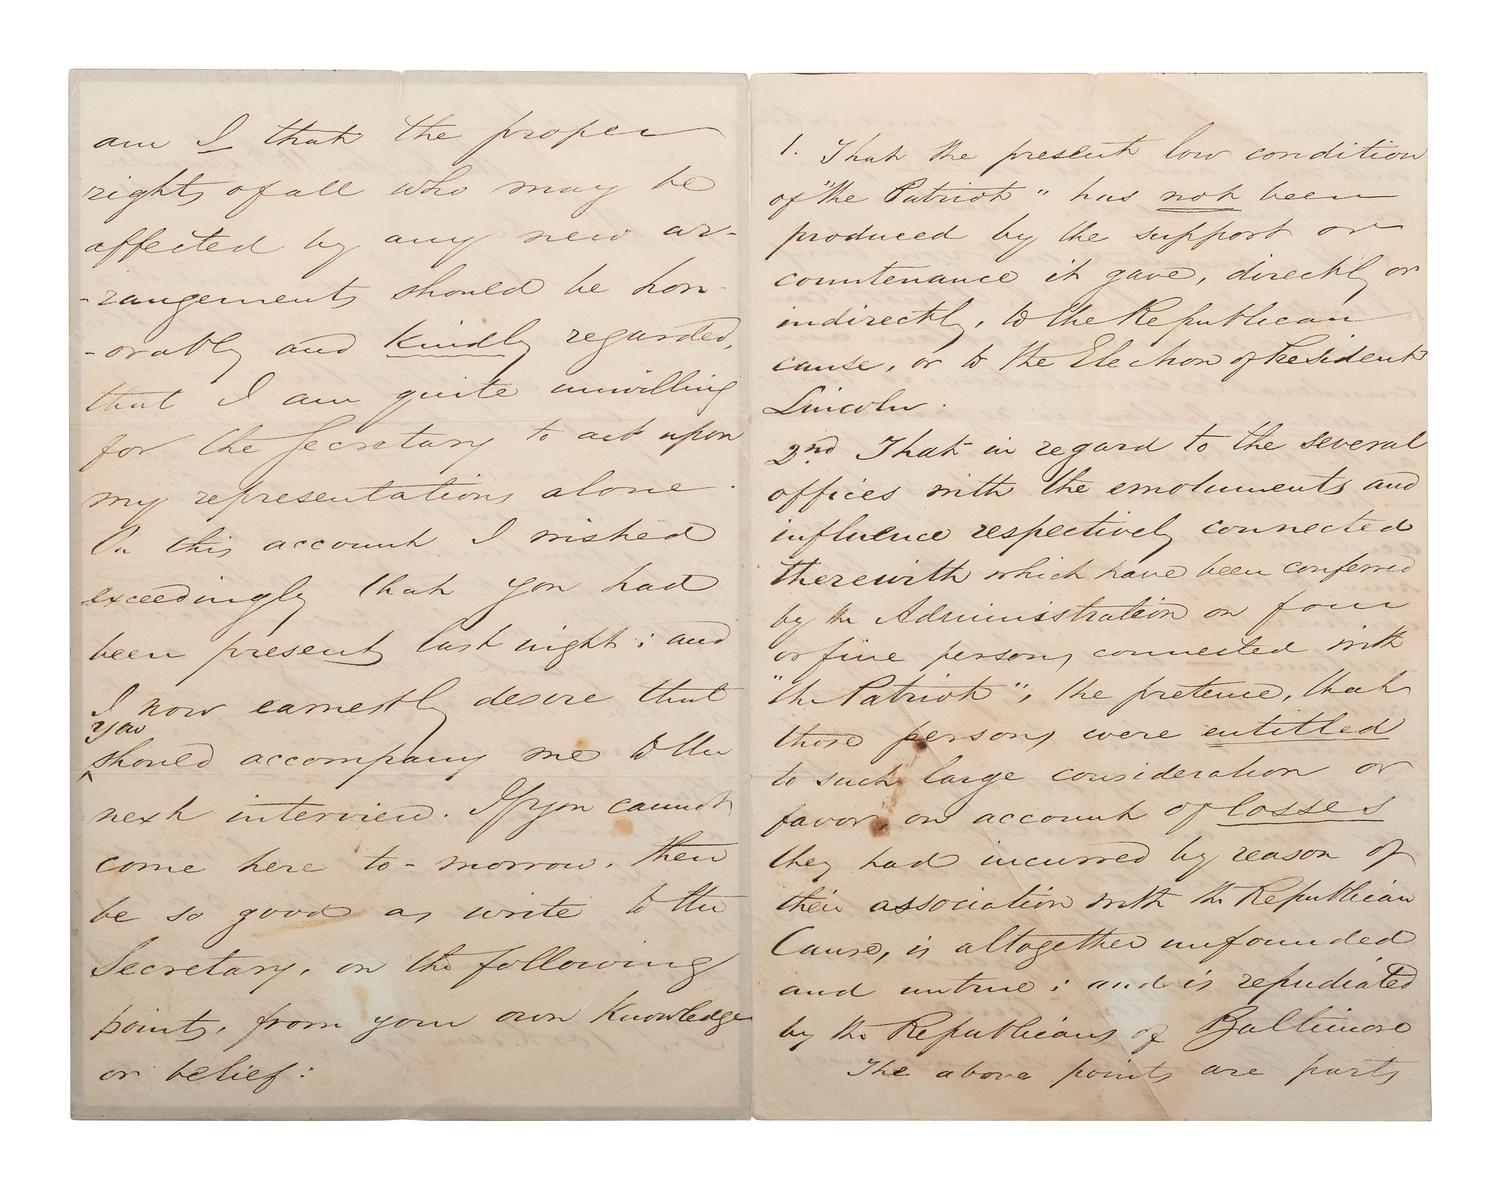 am I that the proper
rights of all who may be
affected by any new ar-
-rangements should be hon-
-orably and kindly regarded,
that I am quite unwilling
for the Secretary to act upon
my representations alone.
On this account I wished
exceedingly that you had
been present last night; and
I now earnestly desire that
you
should accompany me to the
next interview. If you cannot
come here to-morrow, then
be so good as write to the
Secretary, on the following
points, from your own knowledge
or belief:
1. That the present low condition
of "the Patriot" has not been
produced by the support or
countenance it gave, directly or
indirectly, to the Republican
cause, or to the Election of President
Lincoln.
2nd That in regard to the several
offices with the emoluments and
influence respectively connected
therewith which have been conferred
by the Administration on four
or five persons connected with
"the Patriot", the pretence, that
those persons were entitled
to such large consideration or
favor, on account of losses
they had incurred by reason of
their association with the Republican
Cause, is altogether unfounded
and untrue; and is repudiated
by the Republicans of Baltimore
The above points are parts